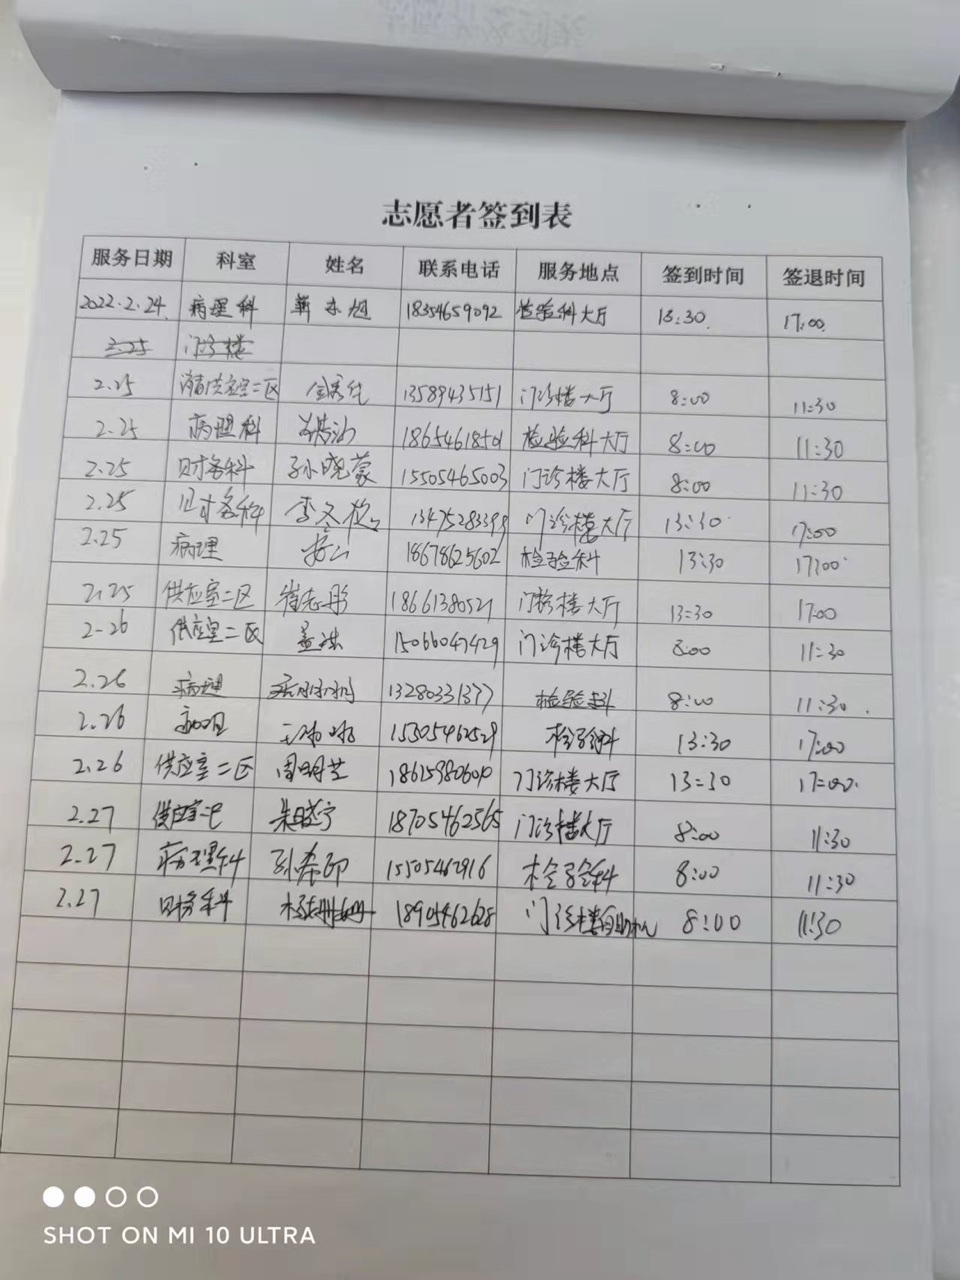 志愿者签到表
服务日期 科室 姓名 联系电话 服务地点 签到时间 签退时间
2022.2.24. 病理科 18354659092 检验科大厅 13:30. 17:00.
2.25 门诊楼
2.25 消毒供应室二区 13589435151 门诊楼大厅 8:00 11:30
2.25 病理科 18654618501 检验科大厅 8:00 11:30
2.25 财务科 孙晓蒙 15505465003 门诊楼大厅 8:00 11:30
2.25 财务科 李冬梅 13475283399 门诊楼大厅 13:30 17:00
2.25 病理 18678625602 检验科 13:30 17:00
2.25 供应室二区 崔志彤 18661380521 门诊楼大厅 13:30 17:00
2.26 供应室二区 15066047429 门诊楼大厅 8:00 11:30
2.26 病理 13280331377 检验科 8:00 11:30.
2.26 病理 15305462529 检验科 13:30 17:00
2.26 供应室二区 周明芝 门诊楼大厅 13:30 17:00.
2.27 供应室二区 朱晓宁 18705462565 门诊楼大厅 8:00 11:30
2.27 病理科 15505462916 检验科 8:00 11:30
2.27 财务科 杨珊珊 18905462628 门诊楼自助机 8:00 11:30
SHOT ON MI 10 ULTRA